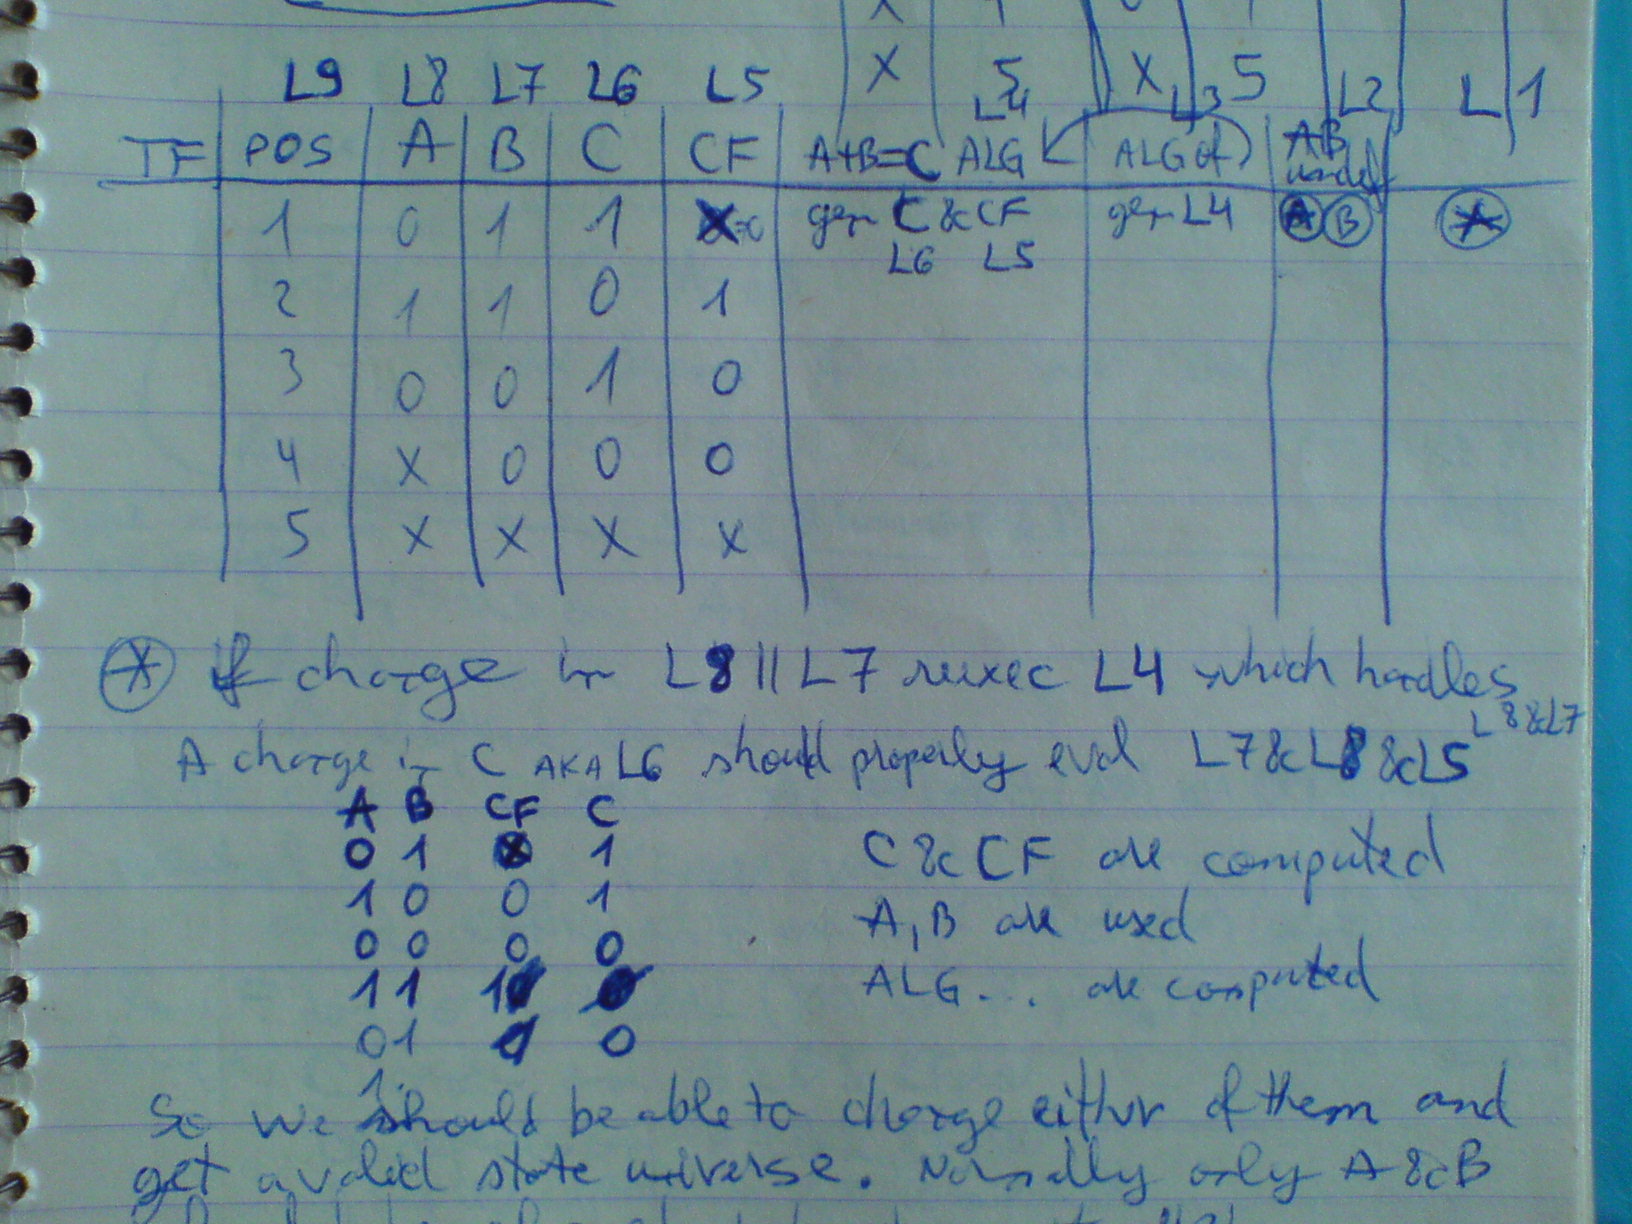 X 5 X 5
L9 L8 L7 L6 L5 L4 L3 L2 L1
TF POS A B C CF A+B=C ALG ALG of AB undef
1 0 1 1 X gen C & CF gen L4 A B *
L6 L5
2 1 1 0 1
3 0 0 1 0
4 X 0 0 0
5 X X X X
* if change in L8 || L7 reexec L4 which handles L8&L7
A change in C AKA L6 should properly eval L7 & L8 & L5
A B CF C
0 1 X 1 C & CF are computed
1 0 0 1 A, B are used
0 0 0 0
1 1 1 0 ALG... are computed
0 1 1 0
1
So we should be able to change either of them and
get a valid state universe. Normally only A & B